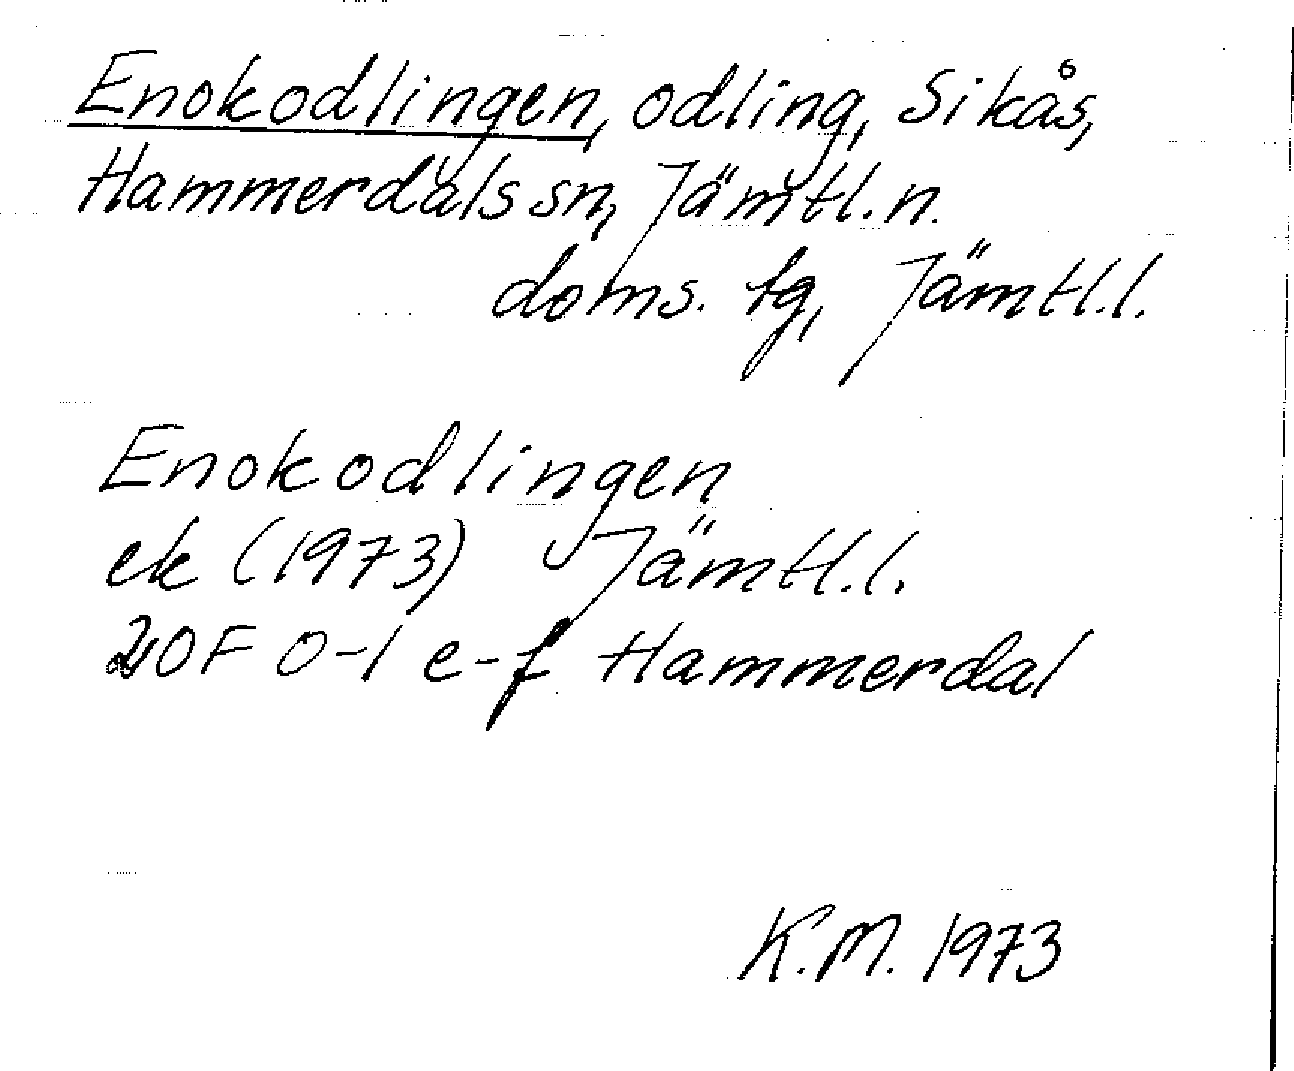 Enokodlingen, odling, Sikås,
Hammerdals sn, Jämtl. n.
doms. tg, Jämtl. l.
Enokodlingen
ek (1973) Jämtl. l.
20F 0-1 e-f Hammerdal
K.M. 1973